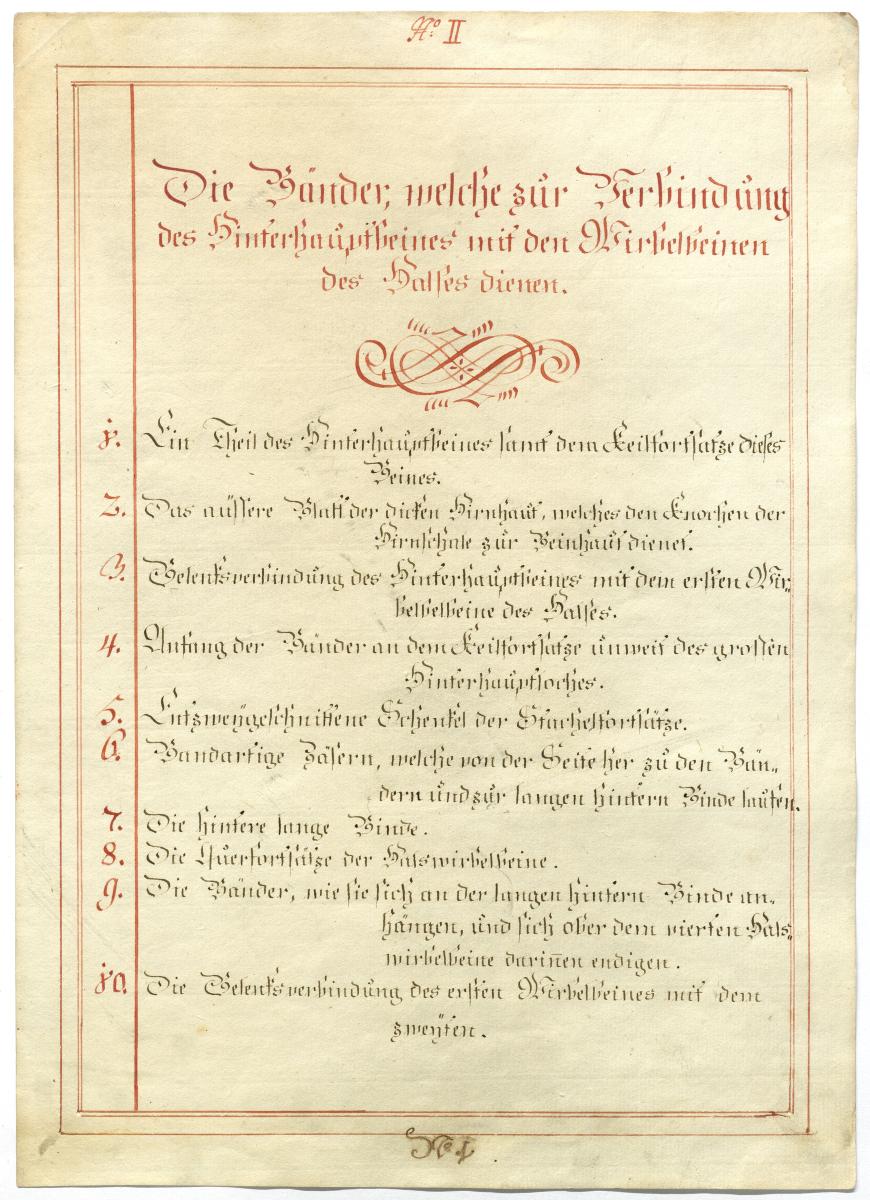 No. II
Die Bänder, welche zur Verbindung
des Hinterhauptbeines mit den Wirbelbeinen
des Halses dienen.
1. Ein Theil des Hinterhauptbeines samt dem Keilfortsatze dieses
Beines.
2. Das äussere Blatt der dicken Hirnhaut, welches den Knochen der
Hirnschale zur Beinhaut dienet.
3. Gelenksverbindung des Hinterhauptbeines mit dem ersten Wir-
belbelbeine des Halses.
4. Anfang der Bänder an dem Keilfortsatze unweit des grossen
Hinterhauptloches.
5. Entzweygeschnittene Schenkel der Stachelfortsätze.
6. Bandartige Zäsern, welche von der Seite her zu den Bän-
dern und zur langen hintern Binde laufen.
7. Die hintere lange Binde.
8. Die Querfortsätze der Halswirbelbeine.
9. Die Bänder, wie sie sich an der langen hintern Binde an-
hängen, und sich ober dem vierten Hals-
wirbelbeine darin̄en endigen.
10. Die Gelenksverbindung des ersten Wirbelbeines mit dem
zweyten.
No. 1